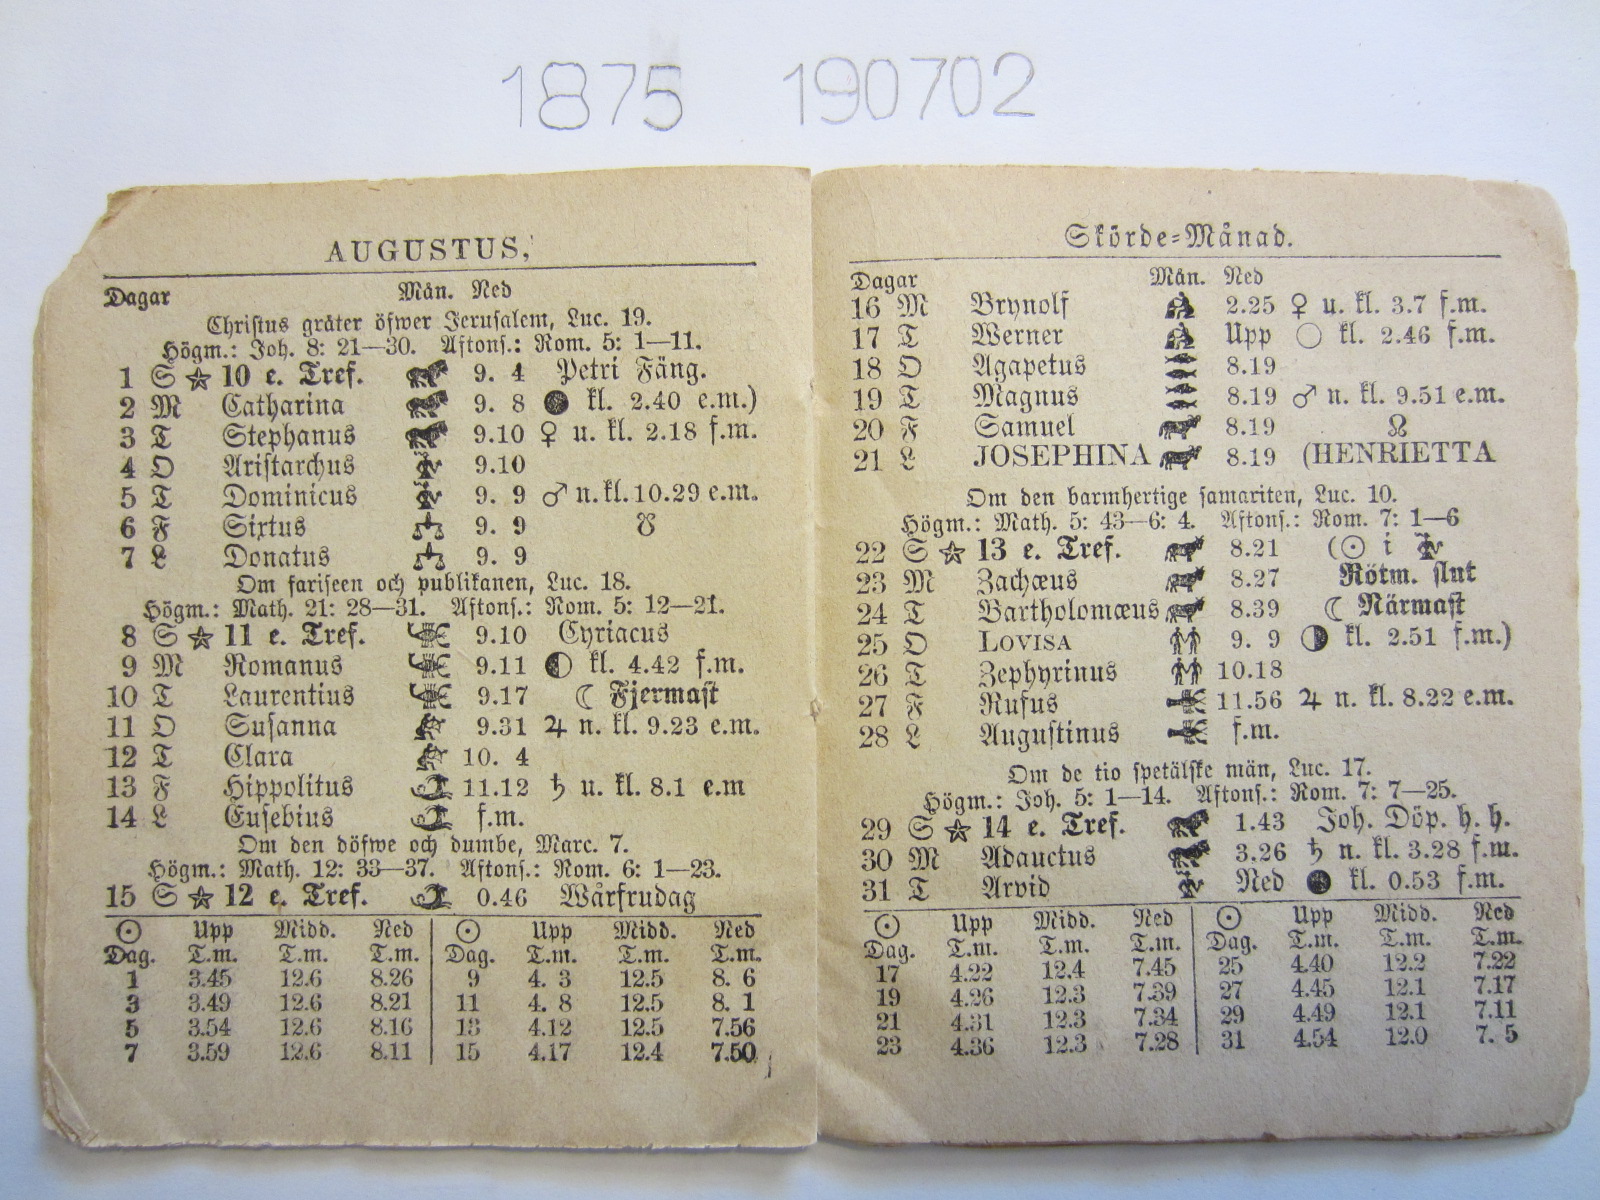 1875 190702
AUGUSTUS,
Dagar Mån. Ned
Christus gråter öfwer Jerusalem, Luc. 19.
Högm.: Joh. 8: 21—30. Aftons.: Rom. 5: 1—11.
1 S 10 e. Tref. 9. 4 Petri Fäng.
2 M Catharina 9. 8 ● kl. 2.40 e.m.)
3 T Stephanus 9.10 ♀ u. kl. 2.18 f.m.
4 O Aristarchus 9.10
5 T Dominicus 9. 9 ♂ n. kl. 10.29 e.m.
6 F Sixtus 9. 9 ☋
7 L Donatus 9. 9
Om fariseen och publikanen, Luc. 18.
Högm.: Math. 21: 28—31. Aftons.: Rom. 5: 12—21.
8 S 11 e. Tref. 9.10 Cyriacus
9 M Romanus 9.11 ◐ kl. 4.42 f.m.
10 T Laurentius 9.17 ☾ Fjermast
11 O Susanna 9.31 ♃ n. kl. 9.23 e.m.
12 T Clara 10. 4
13 F Hippolitus 11.12 ♄ u. kl. 8.1 e.m
14 L Eusebius f.m.
Om den döfwe och dumbe, Marc. 7.
Högm.: Math. 12: 33—37. Aftons.: Rom. 6: 1—23.
15 S 12 e. Tref. 0.46 Wårfrudag
☉ Upp Midd. Ned ☉ Upp Midd. Ned
Dag. T.m. T.m. T.m. Dag. T.m. T.m. T.m.
1 3.45 12.6 8.26 9 4. 3 12.5 8. 6
3 3.49 12.6 8.21 11 4. 8 12.5 8. 1
5 3.54 12.6 8.16 13 4.12 12.5 7.56
7 3.59 12.6 8.11 15 4.17 12.4 7.50
Skörde-Månad.
Dagar Mån. Ned
16 M Brynolf 2.25 ♀ u. kl. 3.7 f.m.
17 T Werner Upp ○ kl. 2.46 f.m.
18 O Agapetus 8.19
19 T Magnus 8.19 ♂ n. kl. 9.51 e.m.
20 F Samuel 8.19 ☊
21 L JOSEPHINA 8.19 (HENRIETTA
Om den barmhertige samariten, Luc. 10.
Högm.: Math. 5: 43—6: 4. Aftons.: Rom. 7: 1—6
22 S 13 e. Tref. 8.21 (☉ i
23 M Zachæus 8.27 Rötm. slut
24 T Bartholomæus 8.39 ☾ Närmast
25 O LOVISA 9. 9 ◑ kl. 2.51 f.m.)
26 T Zephyrinus 10.18
27 F Rufus 11.56 ♃ n. kl. 8.22 e.m.
28 L Augustinus f.m.
Om de tio spetälske män, Luc. 17.
Högm.: Joh. 5: 1—14. Aftons.: Rom. 7: 7—25.
29 S 14 e. Tref. 1.43 Joh. Döp. h. h.
30 M Adauctus 3.26 ♄ n. kl. 3.28 f.m.
31 T Arvid Ned ● kl. 0.53 f.m.
☉ Upp Midd. Ned ☉ Upp Midd. Ned
Dag. T.m. T.m. T.m. Dag. T.m. T.m. T.m.
17 4.22 12.4 7.45 25 4.40 12.2 7.22
19 4.26 12.3 7.39 27 4.45 12.1 7.17
21 4.31 12.3 7.34 29 4.49 12.1 7.11
23 4.36 12.3 7.28 31 4.54 12.0 7. 5